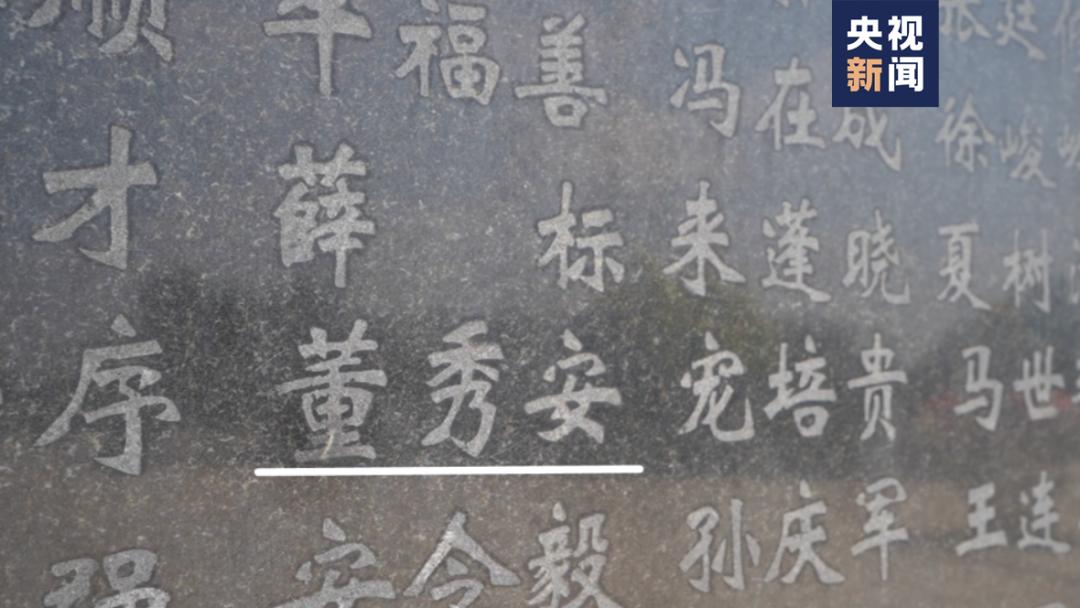 央视
新闻
顺 福善 冯在成 徐峻
才 薛标 来蓬晓 夏树
序 董秀安 宠培贵 马世
强 安令毅 孙庆军 王连